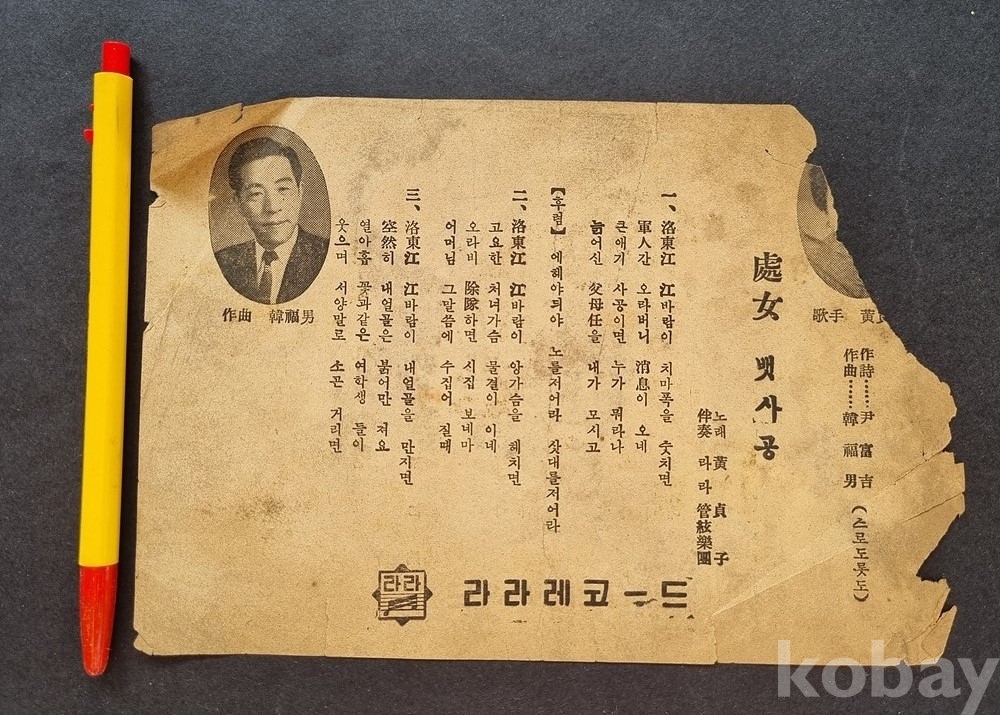 歌手 黄
作詩……尹富吉
作曲……韓福男
(스로도롯도)
處女 뱃사공
노래 黄貞子
伴奏 라라 管絃樂團
一、洛東江 江바람이 치마폭을 슷치면
軍人간 오라버니 消息이 오네
큰애기 사공이면 누가 뭐라나
늙어신 父母任을 내가 모시고
【후렴】 에헤야듸야 노를저어라 삿대를저어라
二、洛東江 江바람이 앙가슴을 헤치면
고요한 처녀가슴 물결이 이네
오라비 除隊하면 시집 보네마
어머님 그말씀에 수집어 질때
三、洛東江 江바람이 내얼골을 만지면
空然히 내얼골은 붉어만 저요
열아홉 꽃과같은 여학생 들이
웃으며 서양말로 소곤 거리면
作曲 韓福男
라라
라라레코ー드
kobay